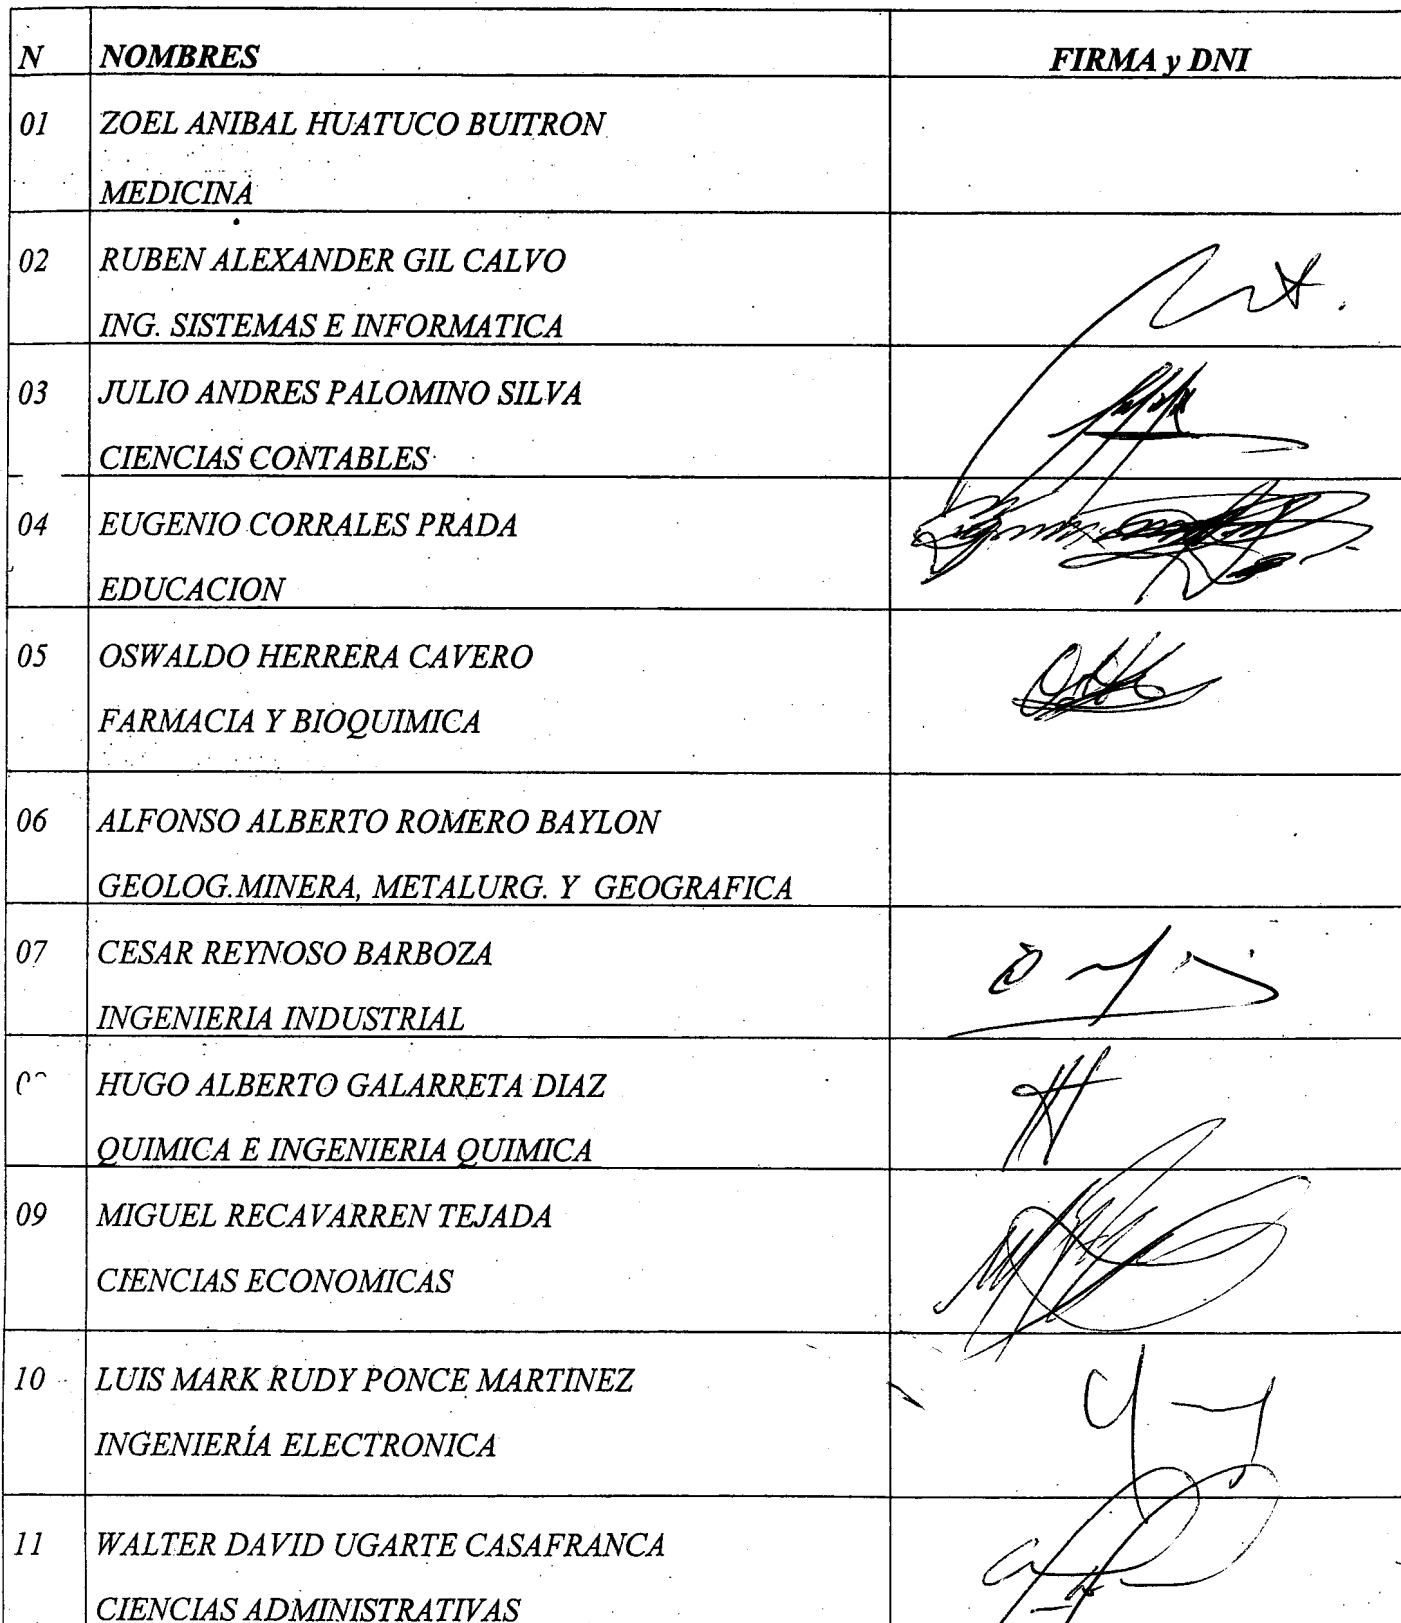 N NOMBRES FIRMA y DNI
01 ZOEL ANIBAL HUATUCO BUITRON
MEDICINA
02 RUBEN ALEXANDER GIL CALVO
ING. SISTEMAS E INFORMATICA
03 JULIO ANDRES PALOMINO SILVA
CIENCIAS CONTABLES
04 EUGENIO CORRALES PRADA
EDUCACION
05 OSWALDO HERRERA CAVERO
FARMACIA Y BIOQUIMICA
06 ALFONSO ALBERTO ROMERO BAYLON
GEOLOG.MINERA, METALURG. Y GEOGRAFICA
07 CESAR REYNOSO BARBOZA
INGENIERIA INDUSTRIAL
HUGO ALBERTO GALARRETA DIAZ
QUIMICA E INGENIERIA QUIMICA
09 MIGUEL RECAVARREN TEJADA
CIENCIAS ECONOMICAS
10 LUIS MARK RUDY PONCE MARTINEZ
INGENIERÍA ELECTRONICA
11 WALTER DAVID UGARTE CASAFRANCA
CIENCIAS ADMINISTRATIVAS